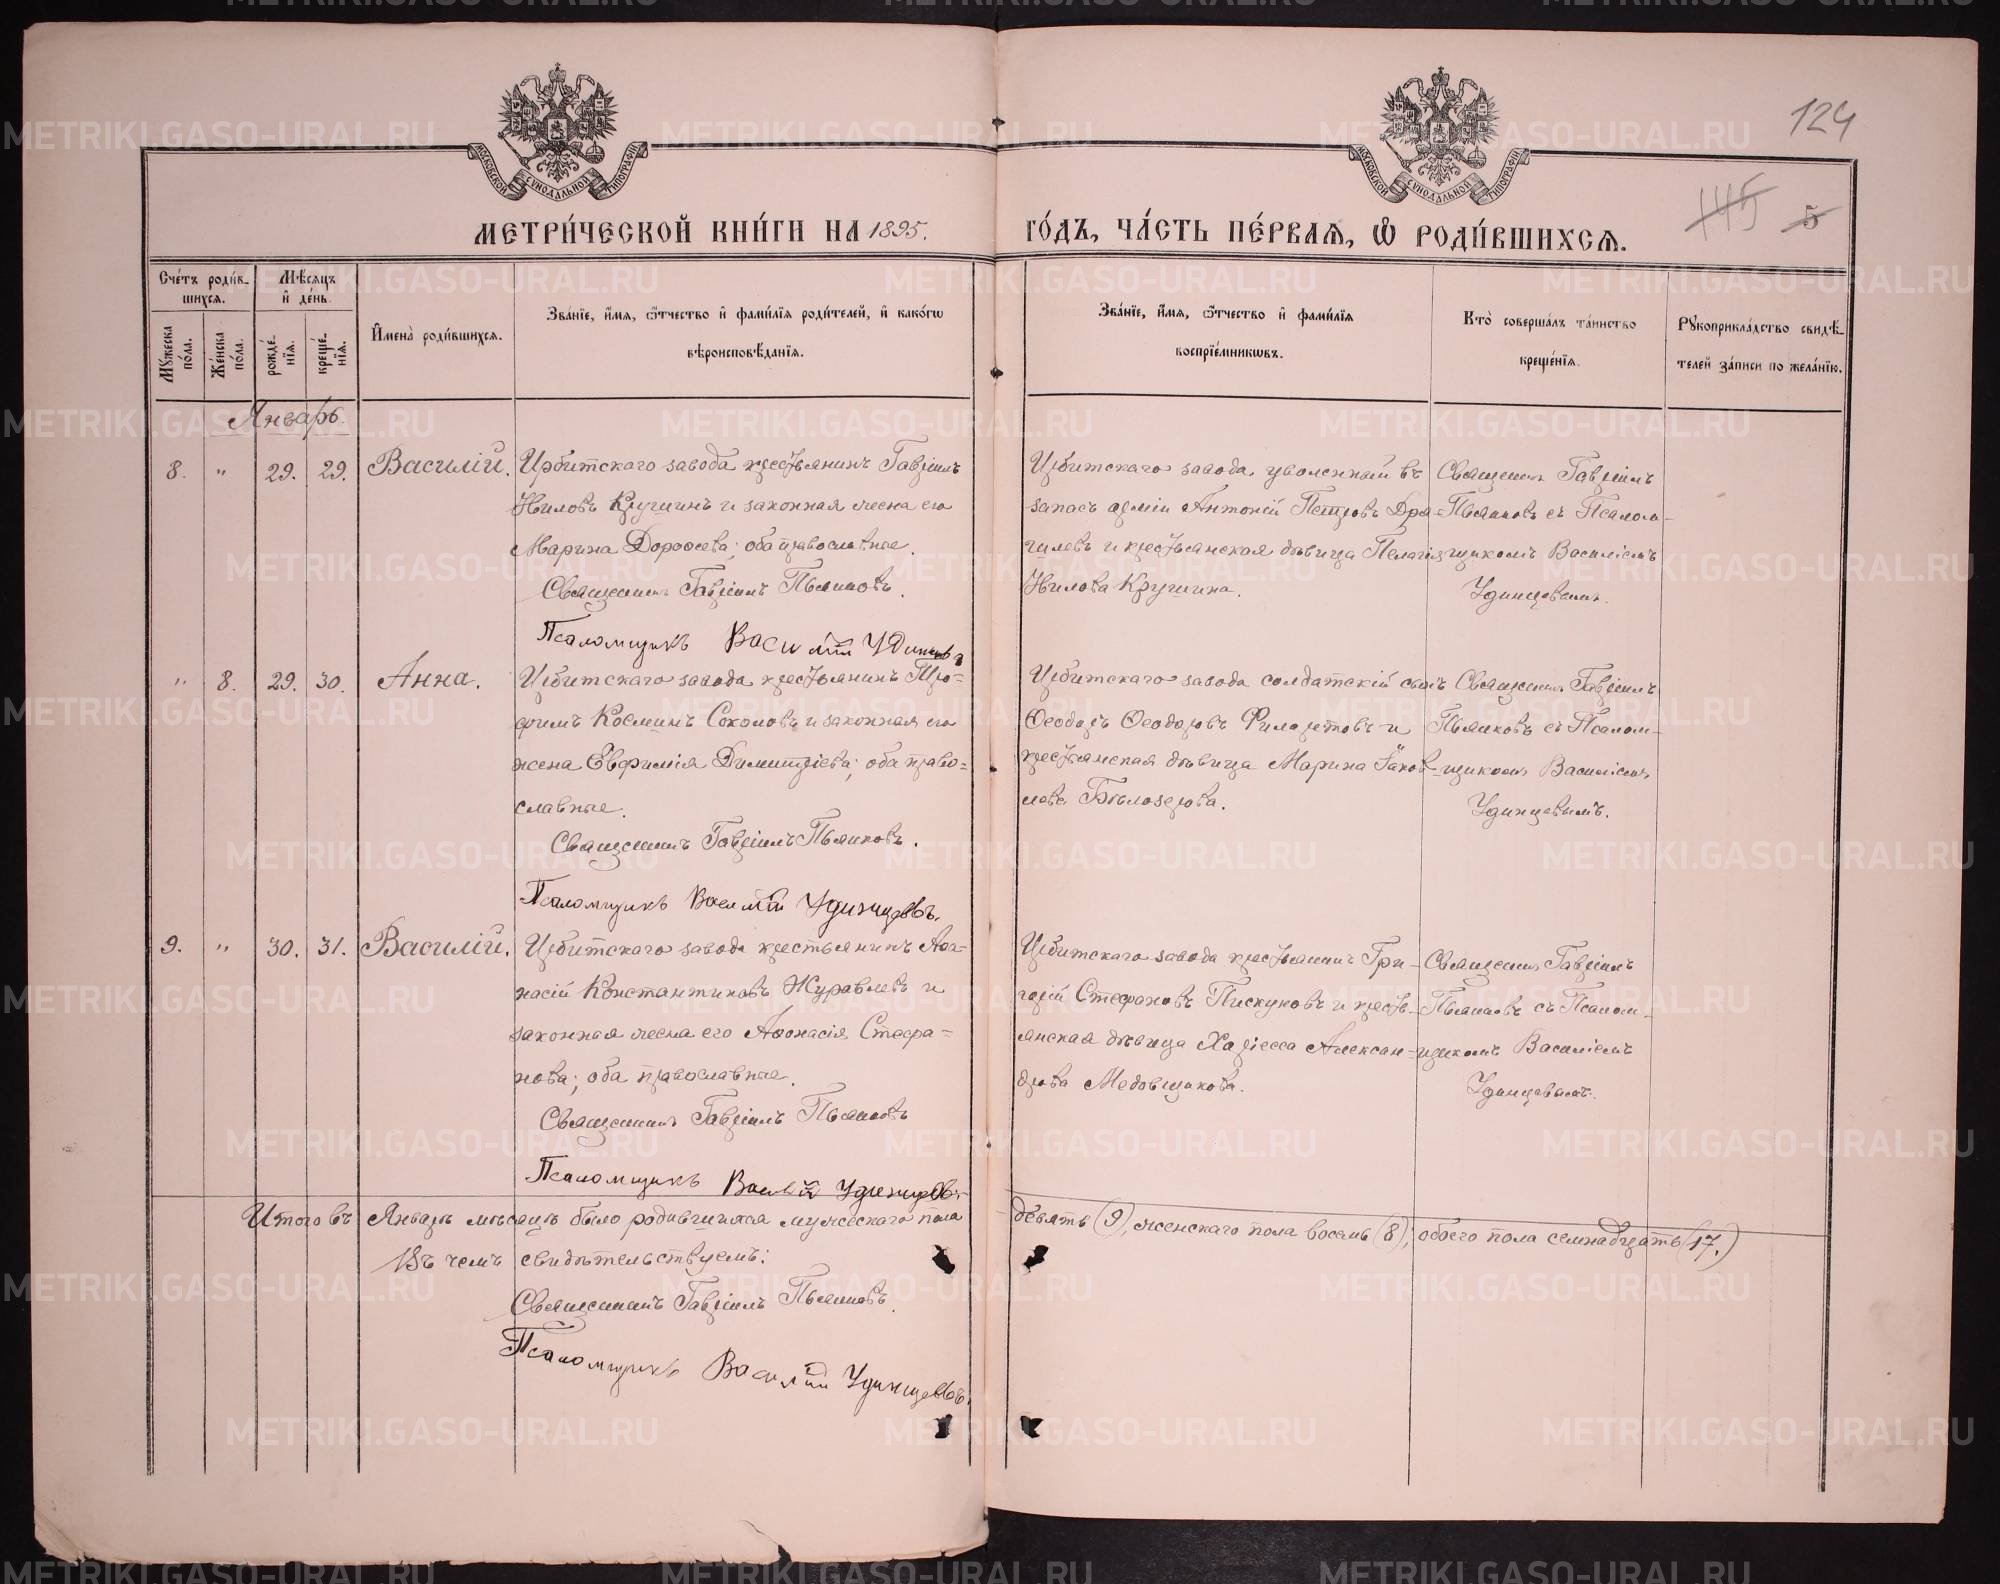 124
145 5
МОСКОВСКОЙ СУНОДАЛЬНОЙ ТИПОГРАФІИ
МОСКОВСКОЙ СУНОДАЛЬНОЙ ТИПОГРАФІИ
МЕТРИ́ЧЕСКОЙ КНИ́ГИ НА 1895. ГО́ДЪ, ЧА́СТЬ ПЕ́РВАЯ, Ѡ РОДИ́ВШИХСЯ.
Сче́тъ роди́в-
шихся.
Мѣ́сяцъ
и҆ де́нь.
И҆мена̀ роди́вшихся.
Зва́нїе, и҆́мя, ѻ҆́тчество и҆ фами́лїя роди́телей, и҆ како́гѡ
вѣроисповѣ́данїя.
Зва́нїе, и҆́мя, ѻ҆́тчество и҆ фами́лїя
воспрїе́мникѡвъ.
Кто̀ соверша́лъ та́инство
креще́нїя.
Рꙋкоприкла́дство свидѣ́-
телей за́писи по жела́нїю.
Мꙋ́жеска
по́ла.
Же́нска
по́ла.
рожде́-
нїя.
креще́-
нїя.
Январь.
8. " 29. 29. Василій. Ирбитскаго завода крестьянинъ Гавріилъ
Ниловъ Крушинъ и законная жена его
Марина Дороѳеева; оба православные.
Священникъ Гавріилъ Пьянковъ.
Псаломщикъ Василій Удинцовъ
Ирбитскаго завода уволенный въ
запасъ арміи Антоній Петровъ Дра-
гилевъ и крестьянская дѣвица Пелагія
Нилова Крушина.
Священникъ Гавріилъ
Пьянковъ съ Псалом-
щикомъ Василіемъ
Удинцевымъ.
" 8. 29. 30. Анна. Ирбитскаго завода крестьянинъ Тро-
фимъ Косминъ Соколовъ и законная его
жена Евфимія Димитріева; оба право-
славные.
Священникъ Гавріилъ Пьянковъ.
Псаломщикъ Василій Удинцевъ.
Ирбитскаго завода солдатскій сынъ
Ѳеодоръ Ѳеодоровъ Филаретовъ и
крестьянская дѣвица Марина Іаков-
лева Бѣлозерова.
Священникъ Гавріилъ
Пьянковъ съ Псалом-
щикомъ Василіемъ
Удинцевымъ.
9. " 30. 31. Василій. Ирбитскаго завода крестьянинъ Аѳа-
насій Константиновъ Журавлевъ и
законная жена его Аѳонасія Стефа-
нова; оба православные.
Священникъ Гавріилъ Пьянковъ
Псаломщикъ Василій Удинцовъ.
Ирбитскаго завода крестьянинъ Гри-
горій Стефановъ Пискуновъ и кресть-
янская дѣвица Харіесса Алексан-
дрова Медовщикова.
Священникъ Гавріилъ
Пьянковъ съ Псалом-
щикомъ Василіемъ
Удинцевымъ.
Итого въ Январѣ мѣсяцѣ было родившихся мужескаго пола девять (9), женскаго пола восемь (8); обоего пола семнадцать (17.)
Въ чемъ свидѣтельствуемъ:
Священникъ Гавріилъ Пьянковъ.
Псаломщикъ Василій Удинцевъ.
METRIKI.GASO-URAL.RU